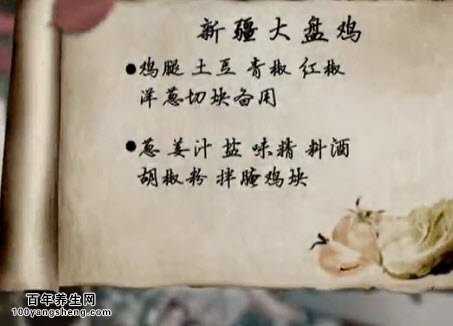 新疆大盘鸡
●鸡腿 土豆 青椒 红椒
洋葱切块备用
●葱 姜汁 盐 味精 料酒
胡椒粉 拌腌鸡块
百年养生网
100yangsheng.com